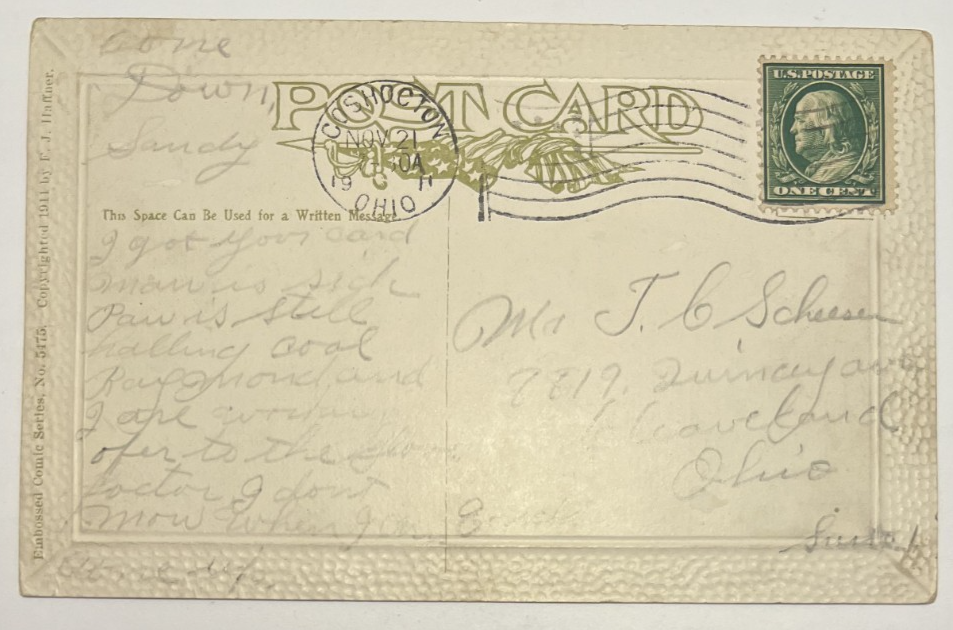 come
Down,
Sandy
POST CARD
COSHOCTON
NOV 21
19 11
OHIO
U.S. POSTAGE
ONE CENT
This Space Can Be Used for a Written Message
I got your card
maw is sick
Paw is still
halling coal
Raymond and
I are
ofer to the
factor I dont
know when Im
Mr J. C
Quincy ave
Cleaveland
Ohio
Embossed Comic Series, No. 5175. Copyrighted 1911 by F. J. Haffner.